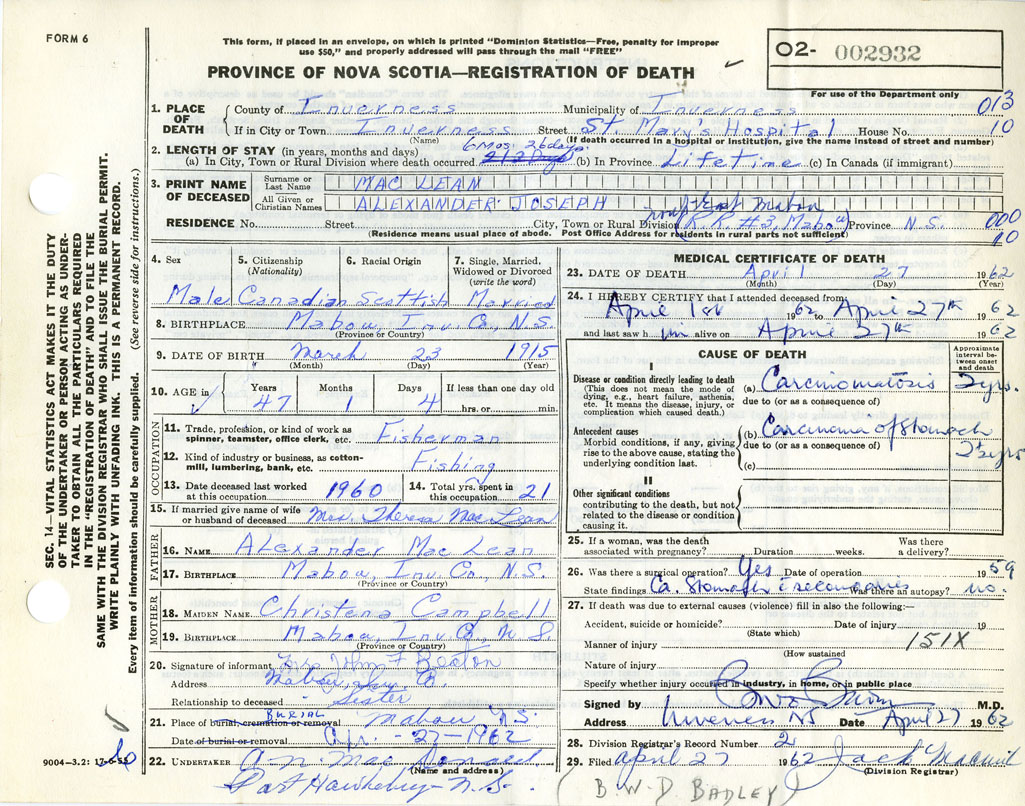 FORM 6
This form, if placed in an envelope, on which is printed "Dominion Statistics—Free, penalty for improper
use $50," and properly addressed will pass through the mail "FREE"
PROVINCE OF NOVA SCOTIA—REGISTRATION OF DEATH
O2- 002932
For use of the Department only
013
10
1. PLACE OF DEATH
County of Inverness Municipality of Inverness
If in City or Town Inverness Street St. Mary's Hospital House No.
(Name) (If death occurred in a hospital or institution, give the name instead of street and number)
2. LENGTH OF STAY (in years, months and days) 6 Mos. 26 days.
(a) In City, Town or Rural Division where death occurred (b) In Province Lifetime (c) In Canada (if immigrant)
3. PRINT NAME OF DECEASED
Surname or Last Name MAC LEAN
All Given or Christian Names ALEXANDER JOSEPH
East Mabou
RESIDENCE No. Street City, Town or Rural Division R.R. #3, Mabou Province N.S. 000
(Residence means usual place of abode. Post Office Address for residents in rural parts not sufficient) 10
4. Sex Male
5. Citizenship (Nationality) Canadian
6. Racial Origin Scottish
7. Single, Married, Widowed or Divorced (write the word) Married
8. BIRTHPLACE Mabou, Inv. Co., N.S.
(Province or Country)
9. DATE OF BIRTH March 23 1915
(Month) (Day) (Year)
10. AGE in Years 47 Months 1 Days 4 If less than one day old hrs. or min.
OCCUPATION
11. Trade, profession, or kind of work as spinner, teamster, office clerk, etc. Fisherman
12. Kind of industry or business, as cotton-mill, lumbering, bank, etc. Fishing
13. Date deceased last worked at this occupation 1960
14. Total yrs. spent in this occupation 21
15. If married give name of wife or husband of deceased Mrs. Theresa Mac Lean
FATHER
16. NAME Alexander Mac Lean
17. BIRTHPLACE Mabou, Inv. Co., N.S.
(Province or Country)
MOTHER
18. MAIDEN NAME Christena Campbell
19. BIRTHPLACE Mabou, Inv. Co., N.S.
(Province or Country)
20. Signature of informant Mrs. John F Beaton
Address Mabou, Inv. Co.
Relationship to deceased Sister
21. Place of burial, cremation or removal BURIAL Mabou N.S.
Date of burial or removal Apr. - 27-1962
22. UNDERTAKER A. N. Mac
(Name and address)
Port Hawkesbury - N.S.
MEDICAL CERTIFICATE OF DEATH
23. DATE OF DEATH April 27 1962
(Month) (Day) (Year)
24. I HEREBY CERTIFY that I attended deceased from
April 1st 1962 to April 27th 1962
and last saw him alive on April 27th 1962
CAUSE OF DEATH
Approximate interval between onset and death
I
Disease or condition directly leading to death
(This does not mean the mode of dying, e.g., heart failure, asthenia, etc. It means the disease, injury, or complication which caused death.)
(a) Carcinomatosis 2 yrs.
due to (or as a consequence of)
Antecedent causes
Morbid conditions, if any, giving rise to the above cause, stating the underlying condition last.
(b) Carcinoma of Stomach
due to (or as a consequence of)
(c)
II
Other significant conditions
contributing to the death, but not related to the disease or condition causing it.
25. If a woman, was the death associated with pregnancy? Duration weeks. Was there a delivery?
26. Was there a surgical operation? Yes Date of operation 1959
State findings Ca. Stomach Was there an autopsy? no.
27. If death was due to external causes (violence) fill in also the following:—
Accident, suicide or homicide? Date of injury 19
(State which)
Manner of injury 151X
(How sustained)
Nature of injury
Specify whether injury occurred in industry, in home, or in public place
Signed by M.D.
Address Inverness NS Date April 27 1962
28. Division Registrar's Record Number 2
29. Filed April 27 1962 Jack
(Division Registrar)
(B.W.D BADLEY)
SEC. 14—VITAL STATISTICS ACT MAKES IT THE DUTY
OF THE UNDERTAKER OR PERSON ACTING AS UNDER-
TAKER TO OBTAIN ALL THE PARTICULARS REQUIRED
IN THE "REGISTRATION OF DEATH" AND TO FILE THE
SAME WITH THE DIVISION REGISTRAR WHO SHALL ISSUE THE BURIAL PERMIT.
WRITE PLAINLY WITH UNFADING INK. THIS IS A PERMANENT RECORD.
Every item of information should be carefully supplied. (See reverse side for instructions.)
9004—3.2: